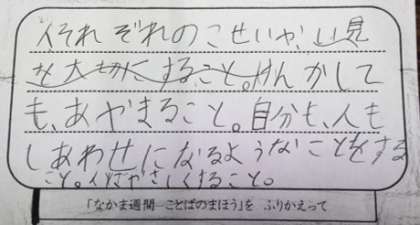 人それぞれのこせいや、い見
を大切にすること。けんかして
も、あやまること。自分も、人も
しあわせになるようなことをする
こと。人にやさしくすること。
「なかま週間―ことばのまほう」を ふりかえって